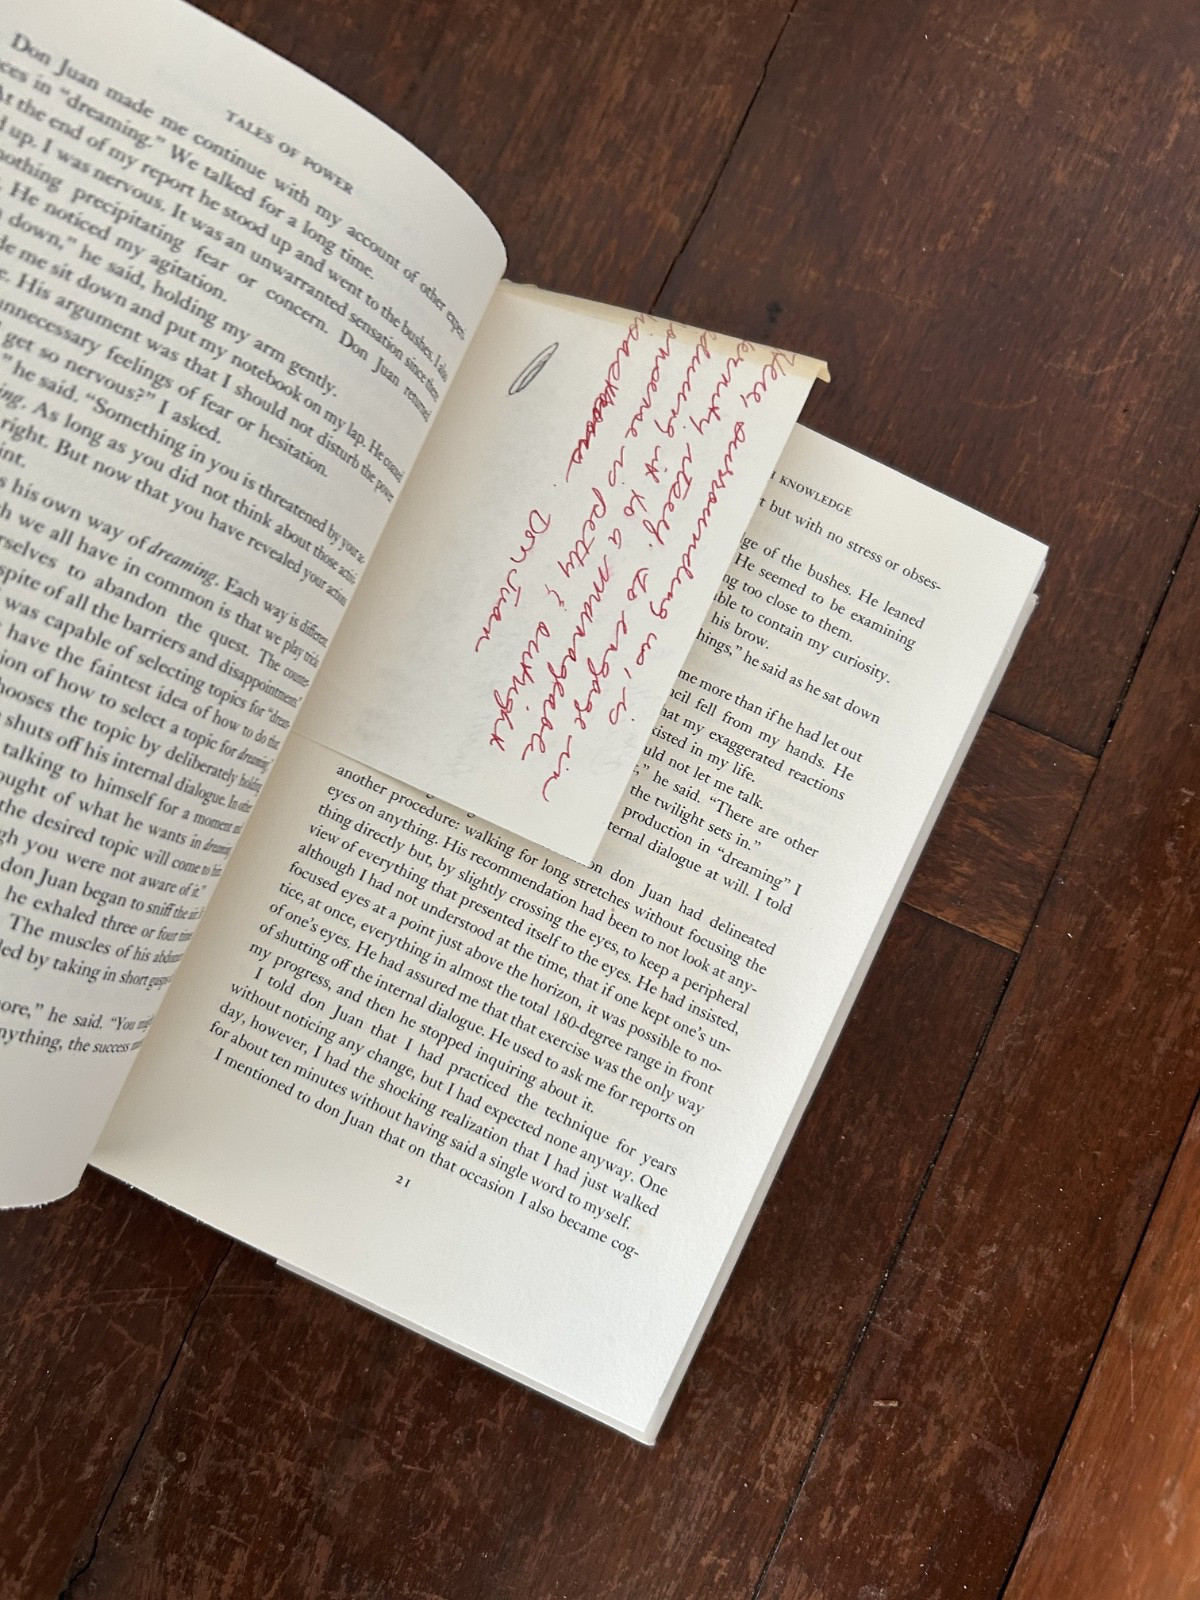 TALES OF POWER
Don Juan made me continue with my account of other experi-
ces in "dreaming." We talked for a long time.
At the end of my report he stood up and went to the bushes. I also
d up. I was nervous. It was an unwarranted sensation since there
nothing precipitating fear or concern. Don Juan returned
. He noticed my agitation.
down," he said, holding my arm gently.
de me sit down and put my notebook on my lap. He coaxed
e. His argument was that I should not disturb the power
unnecessary feelings of fear or hesitation.
get so nervous?" I asked.
," he said. "Something in you is threatened by your
ing. As long as you did not think about those
right. But now that you have revealed your actions
int.
s his own way of dreaming. Each way is different.
h we all have in common is that we play tricks
rselves to abandon the quest. The counter-
spite of all the barriers and disappointments."
was capable of selecting topics for "dream-
have the faintest idea of how to do that.
ion of how to select a topic for dreaming,"
hooses the topic by deliberately holding
shuts off his internal dialogue. In other
talking to himself for a moment and
ought of what he wants in dreaming
the desired topic will come to him.
gh you were not aware of it."
don Juan began to sniff the air.
he exhaled three or four times
The muscles of his
led by taking in short gasps
ore," he said. "You might
nything, the success
Here, surrounding us, is
eternity itself. To engage in
reducing it to a manageable
nonsense is petty & outright
Don Juan
KNOWLEDGE
t but with no stress or obses-
ge of the bushes. He leaned
He seemed to be examining
ng too close to them.
ble to contain my curiosity.
his brow.
hings," he said as he sat down
me more than if he had let out
cil fell from my hands. He
hat my exaggerated reactions
xisted in my life.
uld not let me talk.
," he said. "There are other
the twilight sets in."
production in "dreaming" I
ternal dialogue at will. I told
on don Juan had delineated
another procedure: walking for long stretches without focusing the
eyes on anything. His recommendation had been to not look at any-
thing directly but, by slightly crossing the eyes, to keep a peripheral
view of everything that presented itself to the eyes. He had insisted,
although I had not understood at the time, that if one kept one's un-
focused eyes at a point just above the horizon, it was possible to no-
tice, at once, everything in almost the total 180-degree range in front
of one's eyes. He had assured me that that exercise was the only way
of shutting off the internal dialogue. He used to ask me for reports on
my progress, and then he stopped inquiring about it.
I told don Juan that I had practiced the technique for years
without noticing any change, but I had expected none anyway. One
day, however, I had the shocking realization that I had just walked
for about ten minutes without having said a single word to myself.
I mentioned to don Juan that on that occasion I also became cog-
21